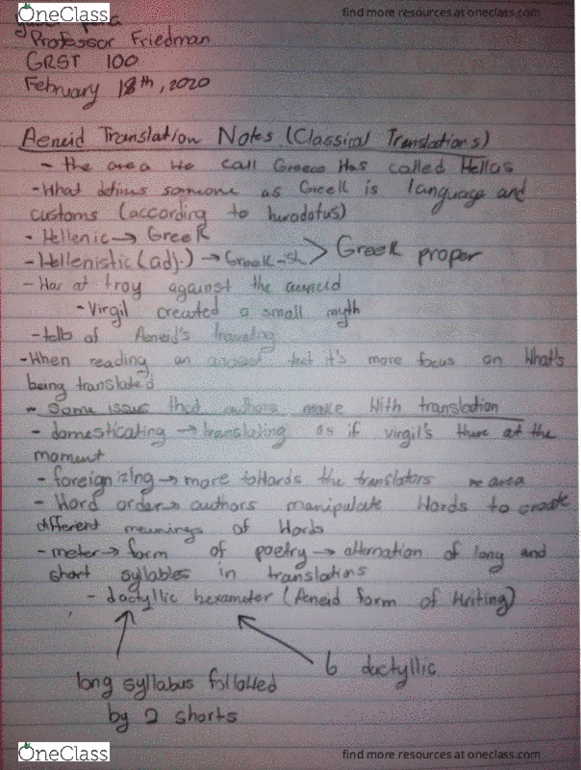 OneClass
find more resources at oneclass.com
Professor Friedman
GRST 100
February 18th, 2020
Aeneid Translation Notes (Classical Translations)
- the area we call Greece was called Hellas
- What defines someone as Greek is language and
customs (according to
- Hellenic → Greek
- Hellenistic (adj.) → Greek-ish > Greek proper
- War at troy against the
- Virgil created a small myth
- tells of Aeneid's traveling
- When reading an ancient text it's more focus on What's
being translated
- Some issue that authors make With translation
- domesticating → translating as if virgil's there at the
moment
- foreignizing → more towards the translators area
- Word order → authors manipulate Words to create
different meanings of Words
- meter → form of poetry → alternation of long and
short syllables in translations
- dactyllic hexameter (Aeneid form of Writing)
6 dactyllic
long syllabus followed
by 2 shorts
OneClass
find more resources at oneclass.com